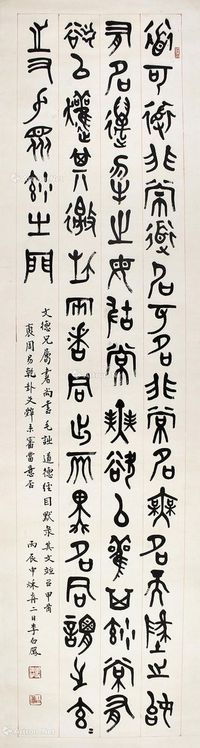 道可道非常道名可名非常名無名天地之始
有名萬物之母故常無欲以觀其妙常有
欲以觀其徼此兩者同出而異名同謂之玄
之又玄眾妙之門
文德兄屬書尚書毛詩道德經目默录其文
周易乾卦文辭未審當意否
丙辰中秋 二日李白鳳